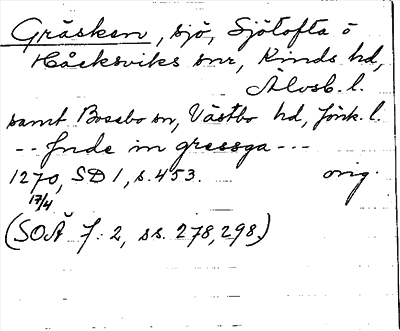 Gräsken, sjö, Sjötofta o
Håcksviks snr, Kinds hd,
Älvsb. l.
samt Bosebo sn, Västbo hd, Jönk. l.
-- Jnde in gressga ---
1270, SD 1, s. 453. orig.
17/4
(SOÄ 7: 2, ss. 278, 298.)